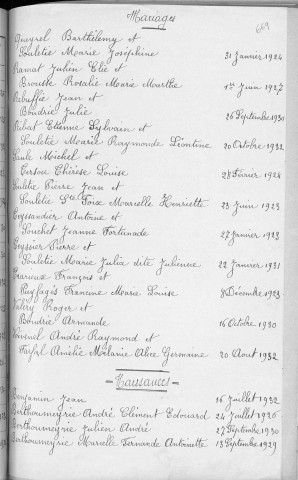 Mariages
669
Queyrel Barthélemy et
Souletie Marie Joséphine 31 Janvier 1924
Ramat Julien Elie et
Brousse Rosalie Marie Marthe 1er Juin 1927
Rebuffie Jean et
Boudrie Julie 26 Septembre 1930
Robert Etienne Sylvain et
Souletie Marie Raymonde Léontine 20 Octobre 1932
Saule Michel et
Cerson Thérèse Louise 28 Février 1924
Souletie Pierre Jean et
Souletie Ste Foix Marcelle Henriette 23 Juin 1923
Teyssandier Antoine et
Souchet Jeanne Fortunade 22 Janvier 1923
Teyssier Pierre et
Souletie Marie Julia dite Julienne 22 Janvier 1931
François et
Puyfagès Francine Marie Louise 8 Décembre 1923
Valéry Roger et
Boudrie Armande 16 Octobre 1930
André Raymond et
Amélie Alice Germaine 20 Août 1932
Naissances
Benjamin Jean 16 Juillet 1932
Berthoumeyrie André Clément Edouard 24 Juillet 1926
Berthoumeyrie Julien André 27 Septembre 1930
Berthoumeyrie Marcelle Fernande Antoinette 13 Septembre 1929